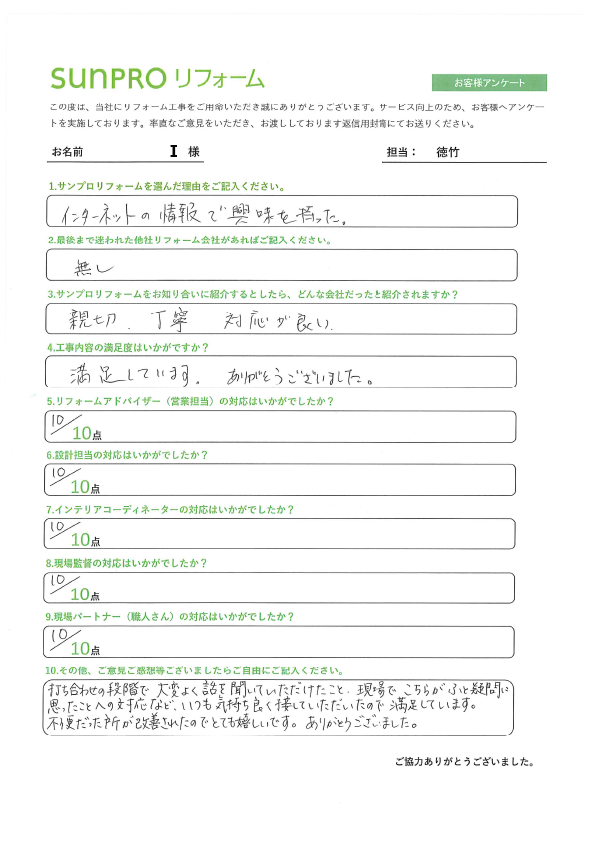 SUNPRO リフォーム
お客様アンケート
この度は、当社にリフォーム工事をご用命いただき誠にありがとうございます。サービス向上のため、お客様へアンケー
トを実施しております。率直なご意見をいただき、お渡ししております返信用封筒にてお送りください。
お名前 I 様 担当： 徳竹
1.サンプロリフォームを選んだ理由をご記入ください。
インターネットの情報で興味を持った。
2.最後まで迷われた他社リフォーム会社があればご記入ください。
無し
3.サンプロリフォームをお知り合いに紹介するとしたら、どんな会社だったと紹介されますか？
親切、丁寧 対応が良い.
4.工事内容の満足度はいかがですか？
満足しています。 ありがとうございました。
5.リフォームアドバイザー（営業担当）の対応はいかがでしたか？
10/10点
6.設計担当の対応はいかがでしたか？
10/10点
7.インテリアコーディネーターの対応はいかがでしたか？
10/10点
8.現場監督の対応はいかがでしたか？
10/10点
9.現場パートナー（職人さん）の対応はいかがでしたか？
10/10点
10.その他、ご意見ご感想等ございましたらご自由にご記入ください。
打ち合わせの段階で 大変よく話を聞いていただけたこと、現場で こちらがふと疑問に
思ったことへの対応など、いつも気持ち良く接していただいたので 満足しています。
不便だった所が改善されたのでとても嬉しいです。ありがとうございました。
ご協力ありがとうございました。